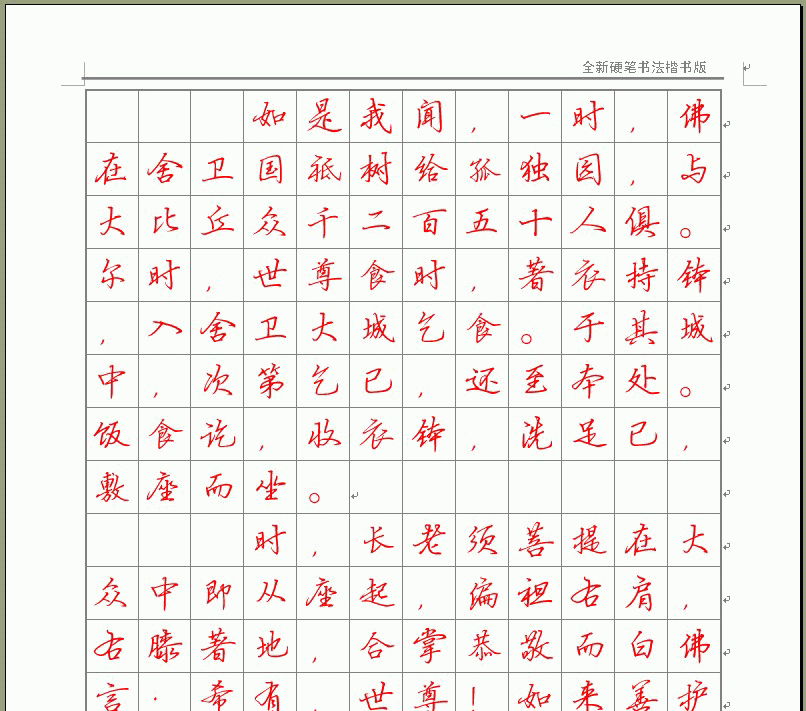 全新硬笔书法楷书版
如是我闻，一时，佛
在舍卫国祇树给孤独园，与
大比丘众千二百五十人俱。
尔时，世尊食时，著衣持钵
，入舍卫大城乞食。于其城
中，次第乞已，还至本处。
饭食讫，收衣钵，洗足已，
敷座而坐。
时，长老须菩提在大
众中即从座起，偏袒右肩，
右膝著地，合掌恭敬而白佛
言：希有，世尊！如来善护